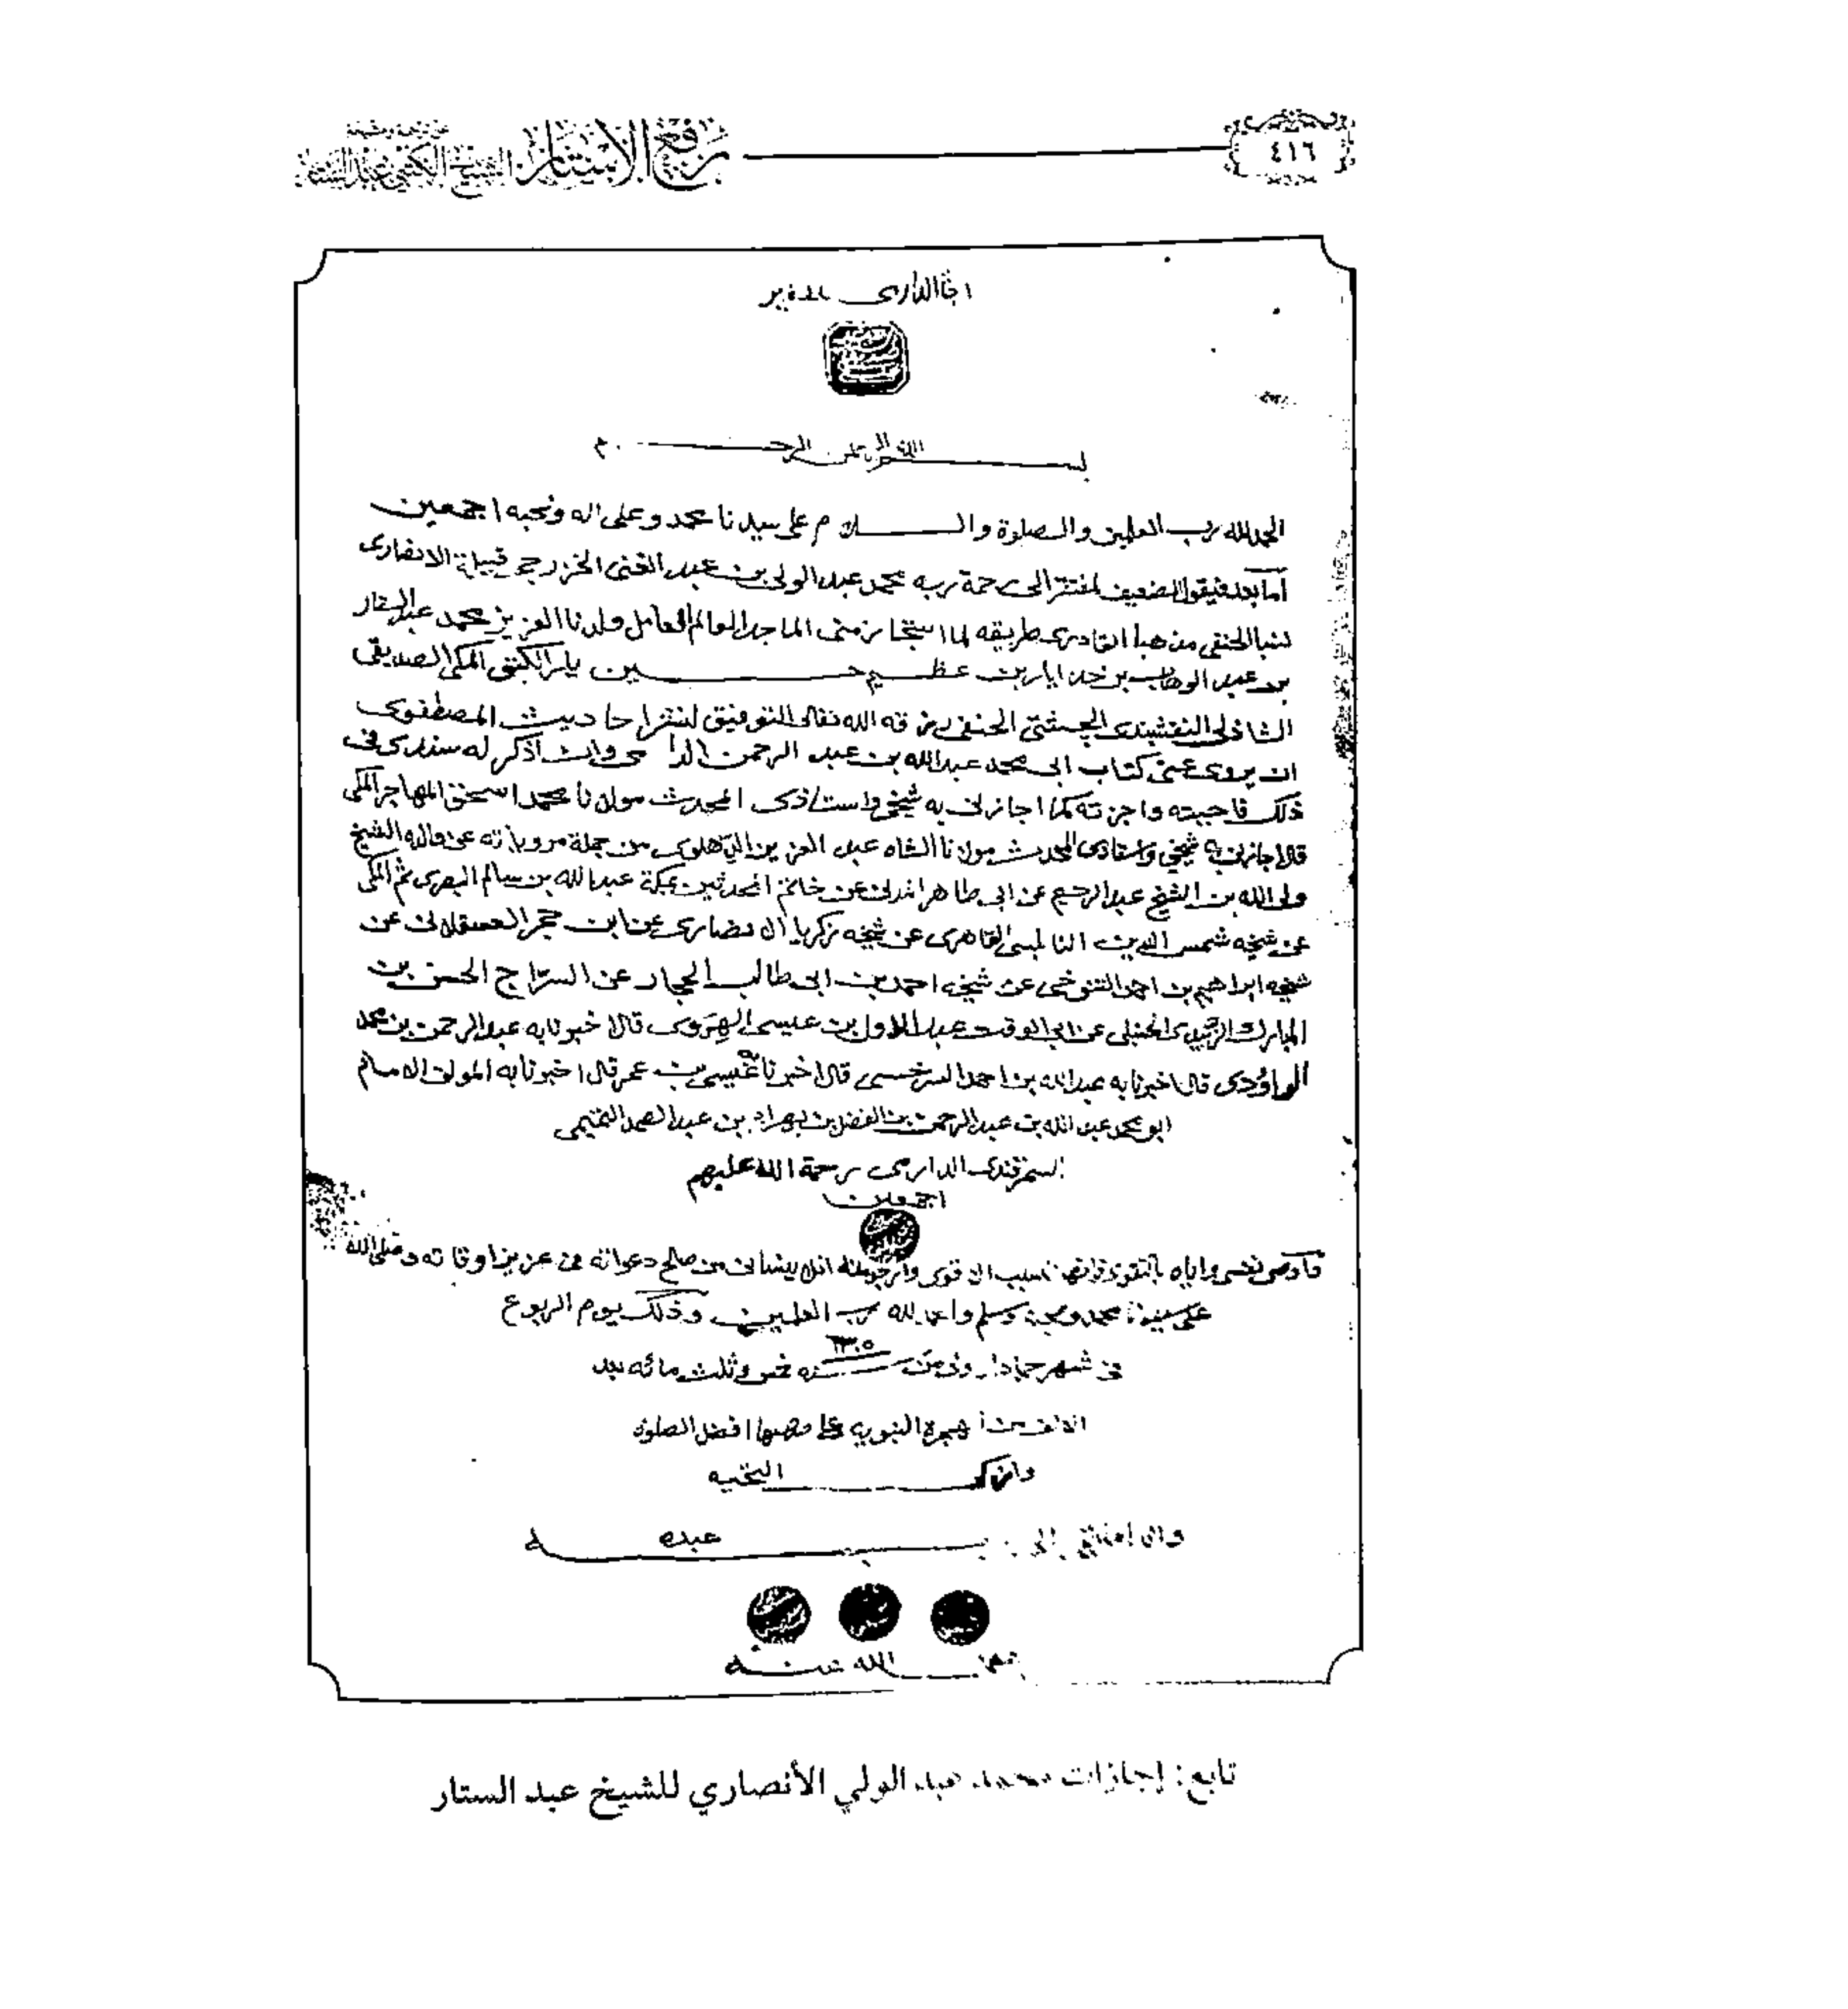 ٤١٦
رفع الأستار
الحمد لله رب العلمين والصلوة والسلام على سيدنا محمد وعلى اله وصحبه اجمعين
اما بعد فيقول الضعيف المفتقر الى رحمة ربه محمد عبد الولى بن عبد الغنى الخزرجى قبيلة الانصارى
نسبا الحنفى مذهبا القادرى طريقه لما استجاز منى الماجد العالم العامل ولدنا العزيز محمد عبد الستار
بن عبد الوهاب بن خدايار بن عظيم حسين يار الكتبى المكى الصديقى
الشاذلى النقشبندى الچشتى الحنفى رزقه الله تعالى التوفيق لنشر احاديث المصطفوى
ان يروى عنى كتاب ابى محمد عبد الله بن عبد الرحمن الدارمى وان اذكر له سندى فى
ذلك فاجبته واجزته كما اجازنى به شيخى واستاذى المحدث مولانا محمد اسحق المهاجر المكى
قال اجازنى به شيخى واستاذى المحدث مولانا الشاه عبد العزيز الدهلوى من جملة مروياته عن والده الشيخ
ولى الله بن الشيخ عبد الرحيم عن ابى طاهر المدنى عن خاتم المحدثين بمكة عبد الله بن سالم البصرى ثم المكى
عن شيخه شمس الدين البابلى القاهرى عن شيخه زكريا الانصارى عن ابن حجر العسقلانى عن
شيخه ابراهيم بن احمد التنوخى عن شيخه احمد بن ابى طالب الحجار عن السراج الحسن بن
المبارك الزبيدى الحنبلى عن ابى الوقت عبد الاول بن عيسى الهروى قال اخبرنا به عبد الرحمن بن محمد
الداؤدى قال اخبرنا به عبد الله بن احمد السرخسى قال اخبرنا به عيسى بن عمر قال اخبرنا به المولف الامام
ابو محمد عبد الله بن عبد الرحمن بن الفضل بن بهرام بن عبد الصمد التميمى
السمرقندى الدارمى رحمة الله عليهم
اجمعين
فاوصى نفسى واياه بالتقوى فانها السبب الاقوى وارجو منه ان لا ينسانى من صالح دعواته فى عزيز اوقاته وصلى الله
على سيدنا محمد وصحبه وسلم والحمد لله رب العلمين وذلك يوم الربوع
فى شهر جماد سنه ١٣٠٥ خمس وثلث مائه بعد
الالف من الهجرة النبويه على صاحبها افضل الصلوة
وازكى التحيه
عبده
الله عنه
تابع: إجازات محمد عبد الولي الأنصاري للشيخ عبد الستار